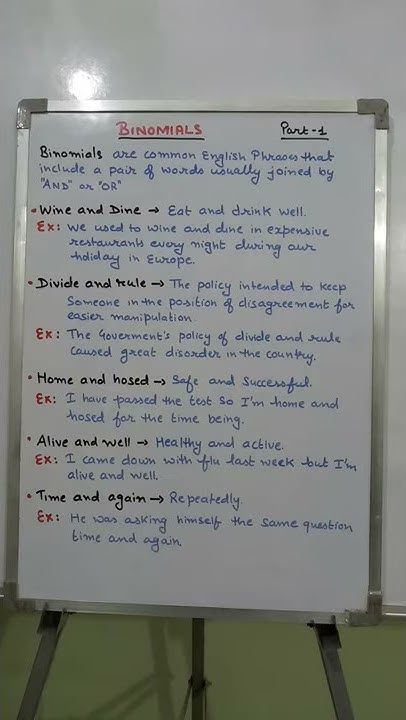 BINOMIALS Part-1
Binomials are common English Phrases that
include a pair of words usually joined by
"AND" or "OR"
• Wine and Dine → Eat and drink well.
Ex: We used to wine and dine in expensive
restaurants every night during our
holiday in Europe.
• Divide and rule → The policy intended to keep
Someone in the position of disagreement for
easier manipulation.
Ex: The Goverment's policy of divide and rule
caused great disorder in the country.
• Home and hosed → Safe and Successful.
Ex: I have passed the test so I'm home and
hosed for the time being.
• Alive and well → Healthy and active.
Ex: I came down with flu last week but I'm
alive and well.
• Time and again → Repeatedly.
Ex: He was asking himself the same question
time and again.